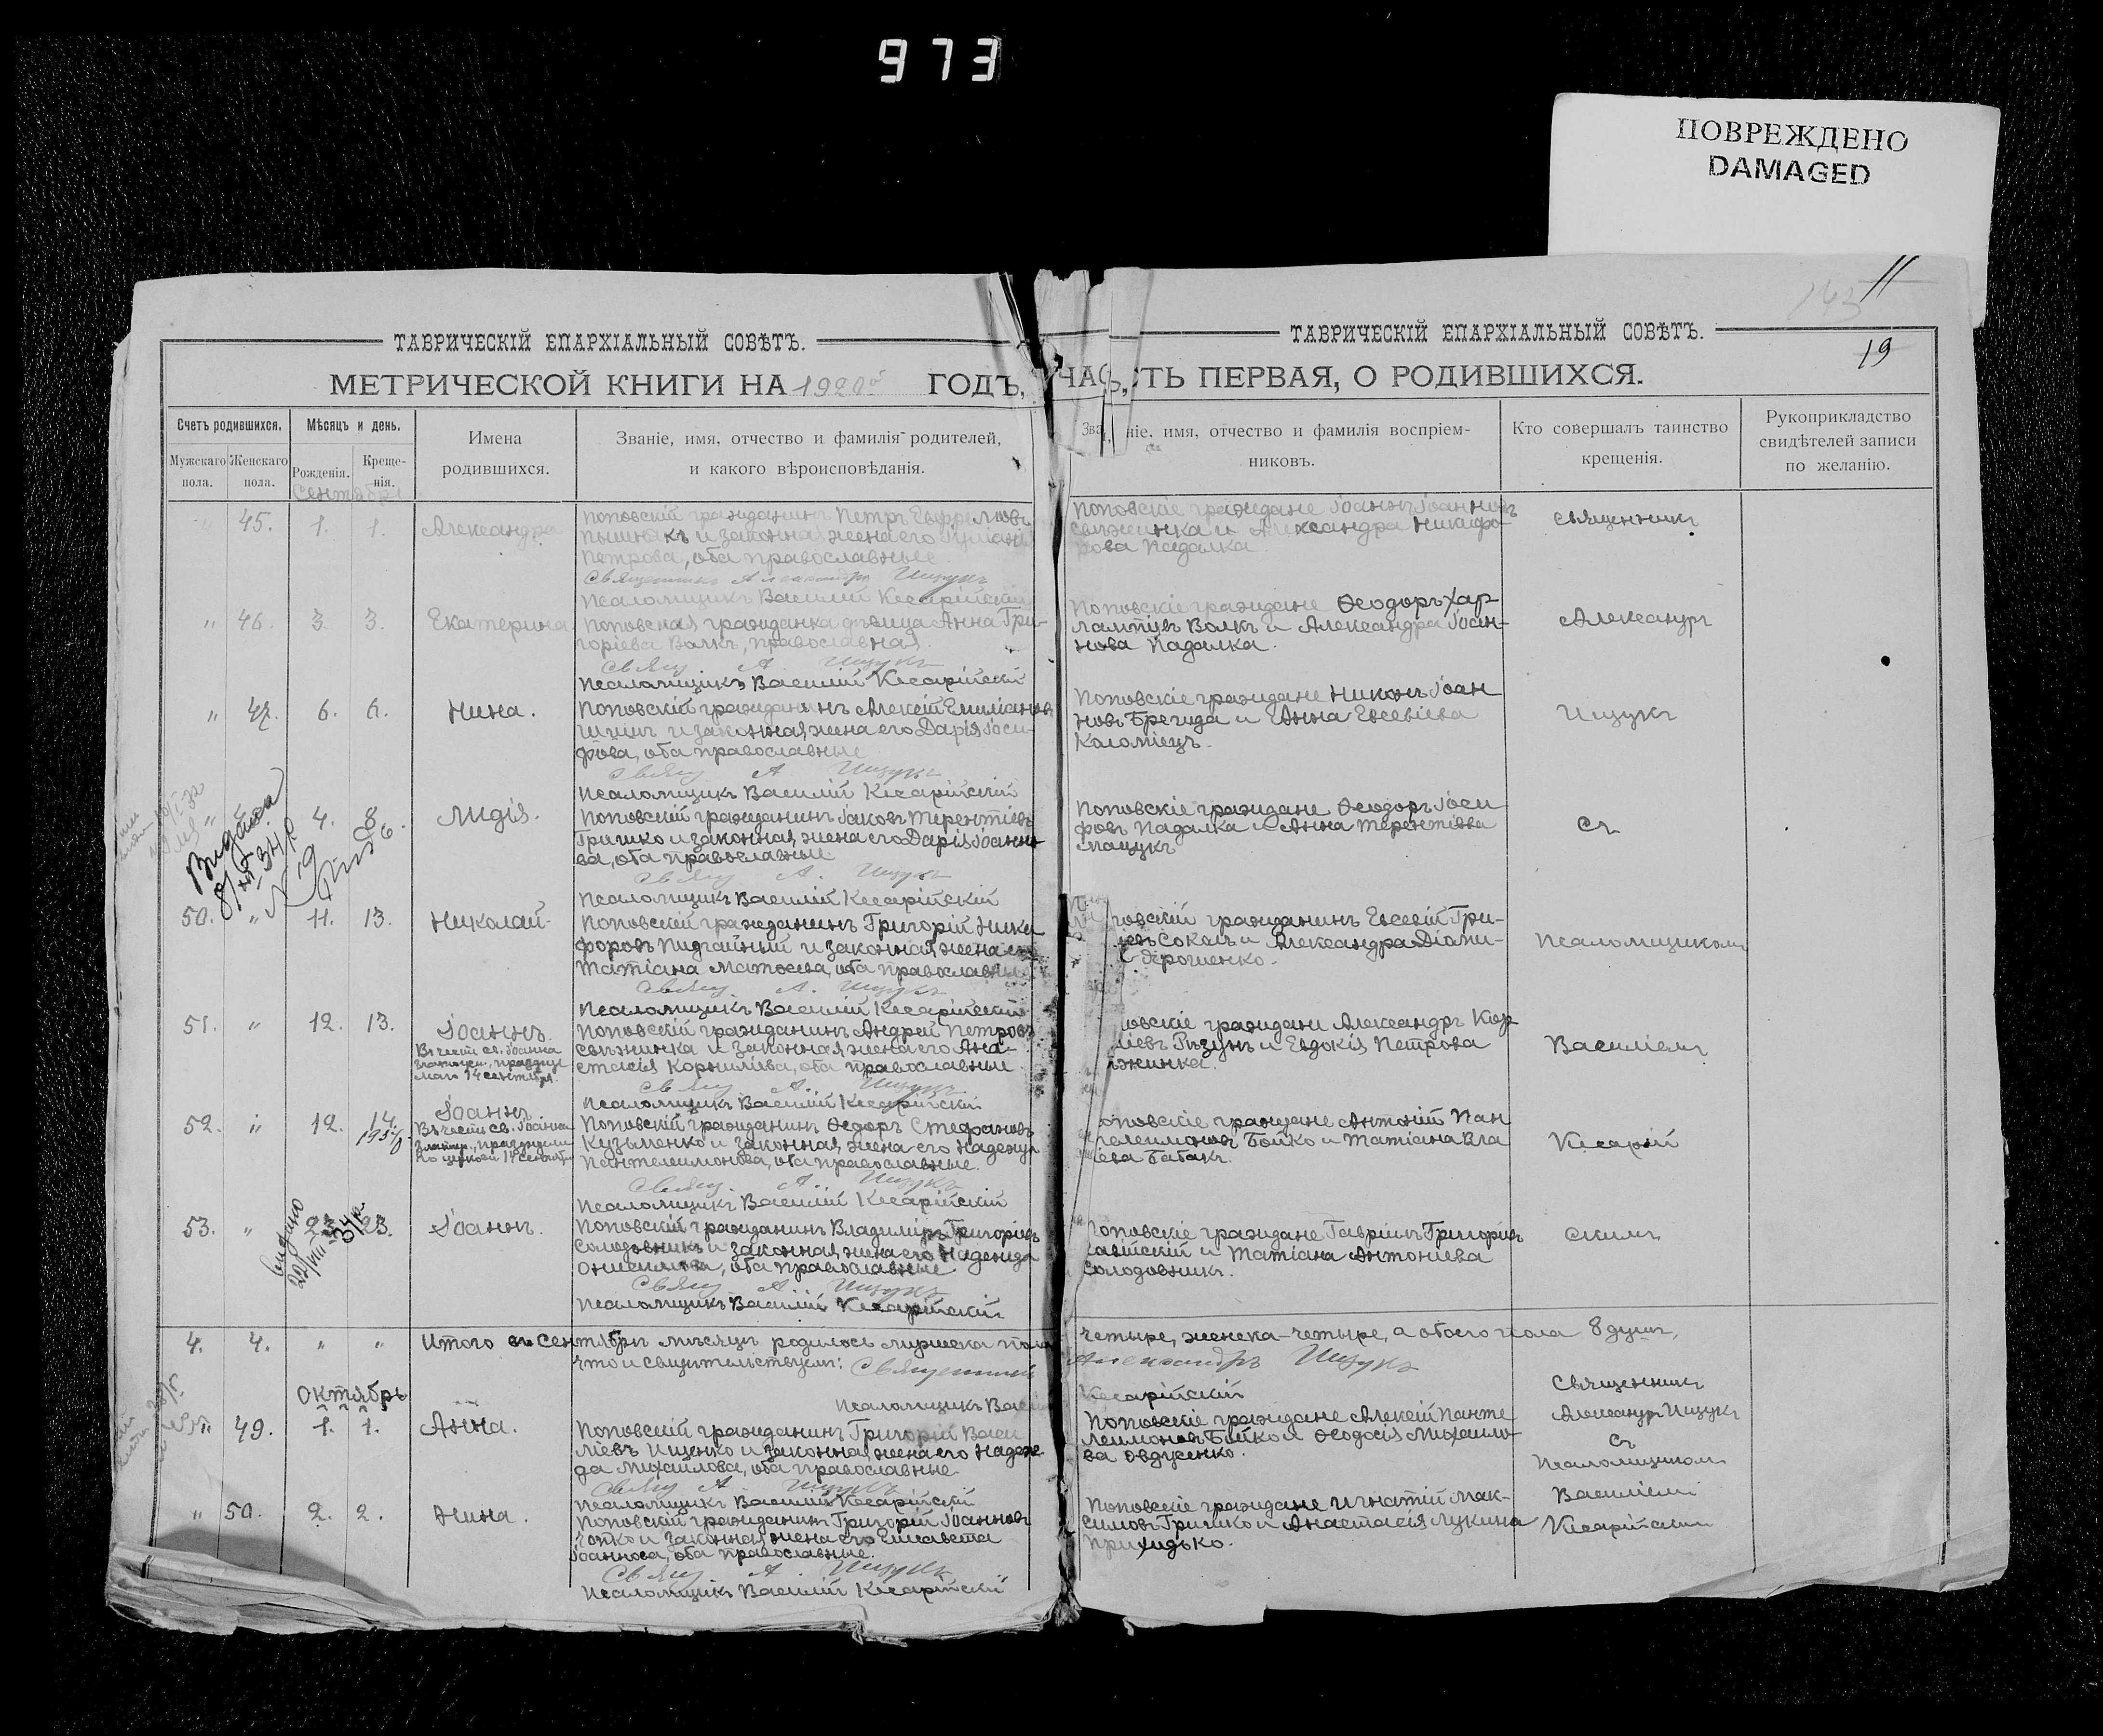 973
ПОВРЕЖДЕНО
DAMAGED
143
11
19
ТАВРИЧЕСКІЙ ЕПАРХІАЛЬНЫЙ СОВѢТЪ.
МЕТРИЧЕСКОЙ КНИГИ НА 1920й ГОДЪ,
Счетъ родившихся.
Мужскаго пола.
Женскаго пола.
Мѣсяцъ и день.
Рожденія.
Креще-
нія.
Имена
родившихся.
Званіе, имя, отчество и фамилія родителей,
и какого вѣроисповѣданія.
ТАВРИЧЕСКІЙ ЕПАРХІАЛЬНЫЙ СОВѢТЪ.
ЧАСТЬ ПЕРВАЯ, О РОДИВШИХСЯ.
Званіе, имя, отчество и фамилія воспріем-
никовъ.
Кто совершалъ таинство
крещенія.
Рукоприкладство
свидѣтелей записи
по желанію.
Сентябрь
" 45. 1. 1. Александра
Поповскій гражданинъ Петръ
и законная жена его
Петрова, оба православные
Священникъ Александръ Ищукъ
Псаломщикъ Василій Кесарійскій
Поповскіе граждане Іоаннъ Іоанновъ
Свѣжинка и Александра Никифо-
рова Падалка
Священникъ
" 46. 3. 3. Екатерина
Поповская гражданка дѣвица Анна Гри-
горіева Волкъ, православная.
Свящ. А. Ищукъ
Псаломщикъ Василій Кесарійскій
Поповскіе граждане Ѳеодоръ Хар-
лампіевъ Волкъ и Александра Іоан-
нова Падалка.
Александръ
" 47. 6. 6. Нина.
Поповскій гражданинъ Алексій Емиліановъ
и законная жена его Дарія Іоси-
фова, оба православные
Свящ А Ищукъ
Псаломщикъ Василій Кесарійскій
Поповскіе граждане Никонъ Іоан
новъ Брегида и Анна Евсевіева
Коломіецъ.
Ищукъ
Видана
" 4. 8. Лидія.
Поповскій гражданинъ Іаковъ Терентіевъ
Гришко и законная жена его Дарія Іоанно-
ва, оба православные
Свящ А. Ищукъ
Псаломщикъ Василій Кесарійскій
Поповскіе граждане Ѳеодоръ Іоси
фовъ Падалка и Анна Терентіева
съ
50. " 11. 13. Николай
Поповскій гражданинъ Григорій Ники
форовъ Пидгайный и законная жена его
Татіана Матѳеева, оба православные
Свящ А. Ищукъ
Псаломщикъ Василій Кесарійскій
повскій гражданинъ Евсевій Гри-
Соколъ и Александра
Дорошенко.
Псаломщикомъ
51. " 12. 13. Іоаннъ.
Въ честь св. Іоанна
14 сентября.
Поповскій гражданинъ Андрей Петровъ
Свѣжинка и законная жена его Ана-
стасія Корниліева, оба православные
Свящ А. Ищукъ
Псаломщикъ Василій Кесарійскій
повскіе граждане Александръ Кор
ліевъ Рѣзунъ и Евдокія Петрова
жинка.
Василіемъ
52. " 12. 14. Іоаннъ
Въ честь св. Іоанна
14 сентября
Поповскій гражданинъ Ѳедоръ Стефановъ
Кузьменко и законная жена его Надежда
Пантелеимонова, оба православные.
Свящ. А. Ищукъ
Псаломщикъ Василій Кесарійскій
оповскіе граждане Антоній Пан
телеимоновъ Бойко и Татіана Вла
іева Бабакъ.
Кесарій
Видано
53. " 23. 23. Іоаннъ.
Поповскій гражданинъ Владиміръ Григоріевъ
Солодовникъ и законная жена его Надежда
Онисимова, оба православные
Свящ А Ищукъ
Псаломщикъ Василій Кесарійскій
Поповскіе граждане Гавріилъ Григоріевъ
и Татіана Антоніева
Солодовникъ.
скимъ
4. 4. " " Итого въ Сентябрѣ мѣсяцѣ родилось мужеска пола четыре, женска-четыре, а обоего пола 8 душъ,
что и свидѣтельствуемъ: Священникъ Александръ Ищукъ
Псаломщикъ Василій Кесарійскій
Октябрь
" 49. 1. 1. Анна.
Поповскій гражданинъ Григорій Васи
ліевъ Ищенко и законная жена его Надеж
да Михайлова, оба православные
Свящ А Ищукъ
Псаломщикъ Василій Кесарійскій
Поповскіе граждане Алексій Панте
леимоновъ Бойко и Ѳеодосія Михайло-
ва Овдіенко.
Священникъ
Александръ Ищукъ
съ
Псаломщикомъ
" 50. 2. 2. Нина.
Поповскій гражданинъ Григорій Іоанновъ
и законная жена его Елисавета
Іоаннова, оба православные.
Свящ А. Ищукъ
Псаломщикъ Василій Кесарійскій
Поповскіе граждане Игнатій Мак-
симовъ Гришко и Анастасія Лукина
Приходько.
Василіемъ
Кесарійскимъ